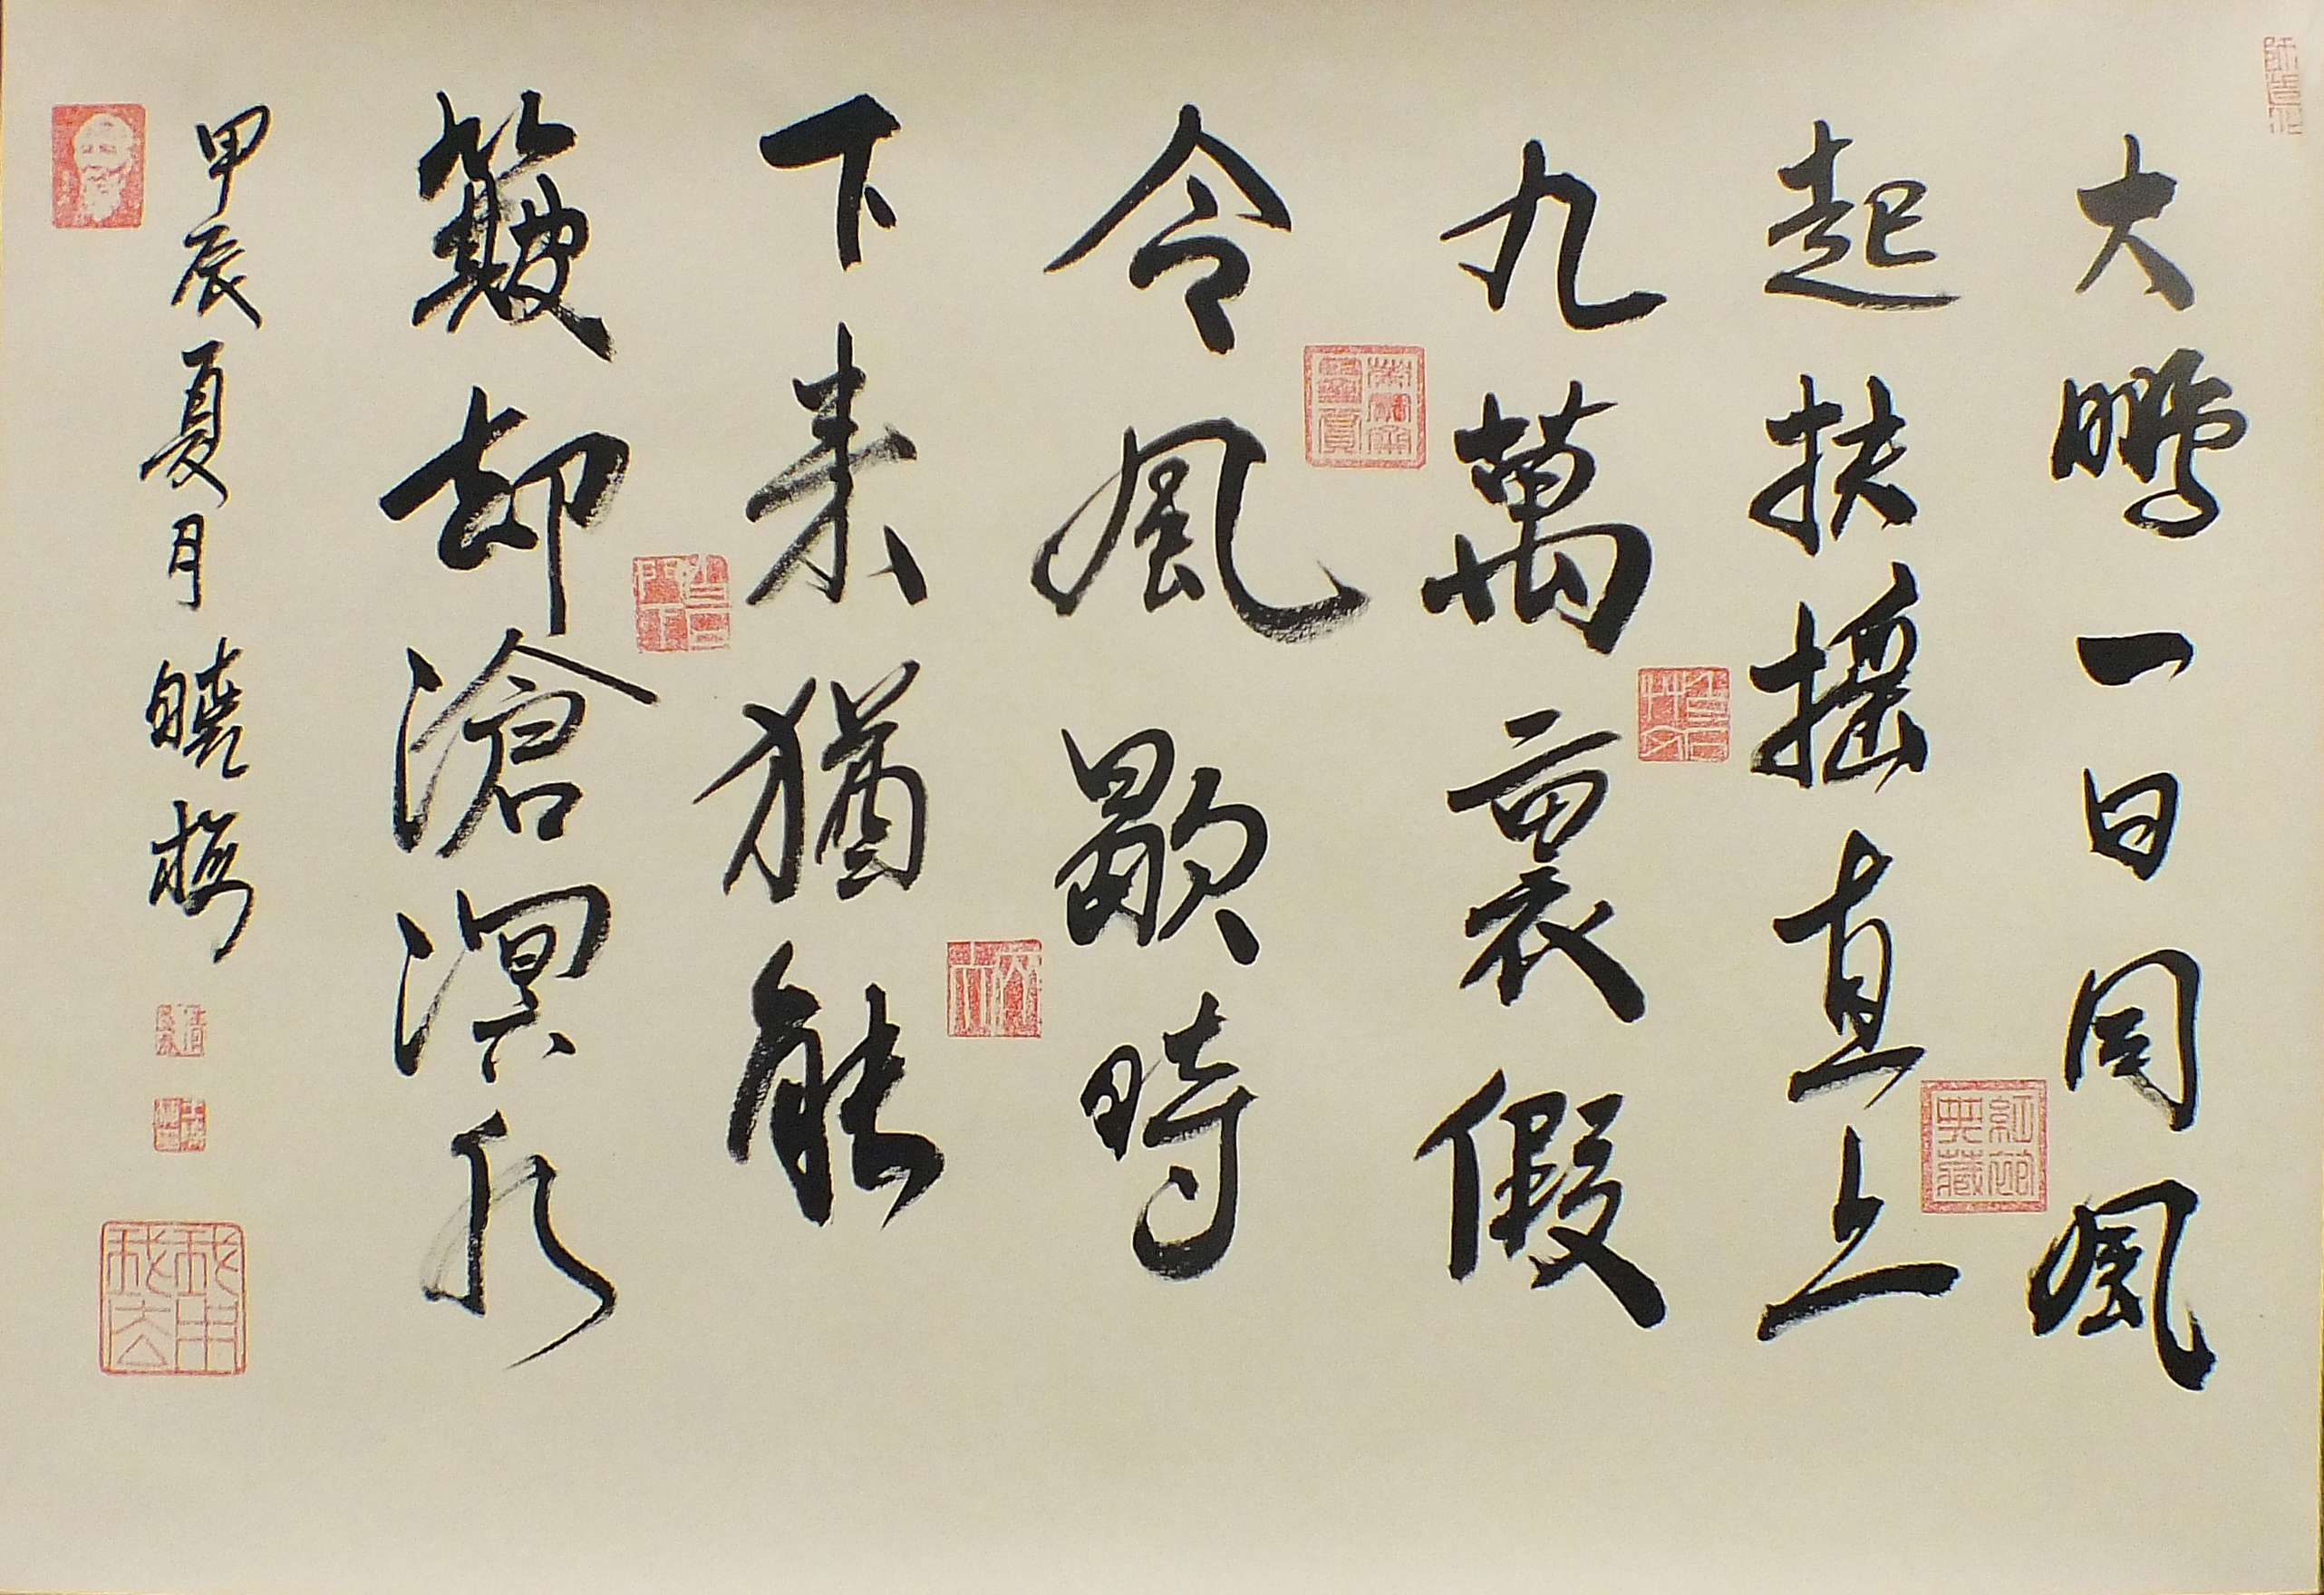 大鵬一日同風
起扶摇直上
九萬裏假
令風歇時
下来猶能
簸却滄溟水
甲辰夏月曉梅